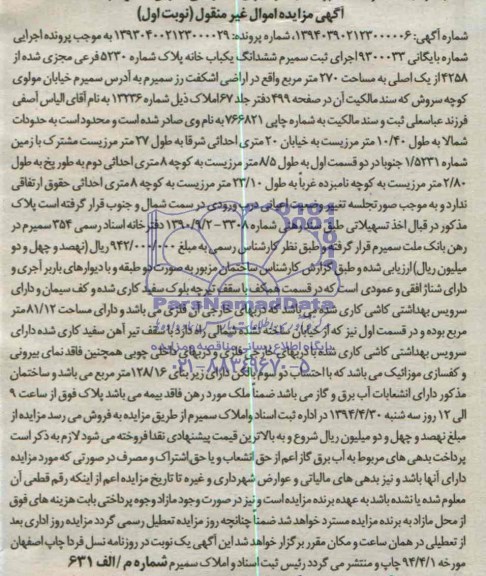 آگهی مزایده اموال غیر منقول (نوبت اول)
شماره آگهی: ۱۳۹۴۰۳۹۰۲۱۲۳۰۰۰۰۰۶، شماره پرونده: ۱۳۹۳۰۴۰۰۲۱۲۳۰۰۰۰۲۹ به موجب پرونده اجرایی
شماره بایگانی ۹۳۰۰۰۳۳ اجرای ثبت سمیرم ششدانگ یکباب خانه پلاک شماره ۵۲۳۰ فرعی مجزی شده از
۴۲۵۸ از یک اصلی به مساحت ۲۷۰ متر مربع واقع در اراضی اشکفت رز سمیرم به آدرس سمیرم خیابان مولوی
کوچه سروش که سند مالکیت آن در صفحه ۴۹۹ دفتر جلد ۶۷ املاک ذیل شماره ۱۳۲۳۶ به نام آقای الیاس آصفی
فرزند عباسعلی ثبت و سند مالکیت به شماره چاپی ۷۶۶۸۲۱ به نام وی صادر شده است و محدود است به حدودات
شمالا به طول ۱۰/۴۰ متر مرزیست به خیابان ۲۰ متری احداثی شرقا به طول ۲۷ متر مرزیست مشترک با زمین
شماره ۱/۵۲۳۱ جنوبا در دو قسمت اول به طول ۸/۵ متر مرزیست به کوچه ۸ متری احداثی دوم به طور پخ به طول
۲/۸۰ متر مرزیست به کوچه نامبرده غرباً به طول ۲۳/۱۰ متر مرزیست به کوچه ۸ متری احداثی حقوق ارتفاقی
ندارد و به موجب صورتجلسه تغییر وضعیت اعیانی درب ورودی در سمت شمال و جنوب قرار گرفته است پلاک
مذکور در قبال اخذ تسهیلاتی طبق سند رهنی شماره ۳۳۰۸ - ۱۳۹۰/۹/۲ دفترخانه اسناد رسمی ۳۵۴ سمیرم در
رهن بانک ملت سمیرم قرار گرفته و طبق نظر کارشناس رسمی به مبلغ ۹۴۲/۰۰۰/۰۰۰ ریال (نهصد و چهل و دو
میلیون ریال) ارزیابی شده و طبق گزارش کارشناس ساختمان مزبور به صورت دو طبقه و با دیوارهای باربر آجری و
دارای شناژ افقی و عمودی است که در قسمت همکف با سقف تیرچه بلوک سفید کاری شده و کف سیمان و دارای
سرویس بهداشتی کاشی کاری شده می باشد که دربهای خارجی آن فلزی می باشد و دارای مساحت ۸۱/۱۲ متر
مربع بوده و در قسمت اول نیز که از خیابان سمت شمالی راه دارد با سقف تیر آهن سفید کاری شده دارای
سرویس بهداشتی کاشی کاری شده با دربهای خارجی فلزی و دربهای داخلی چوبی همچنین فاقد نمای بیرونی
و کفسازی موزائیک می باشد که با احتساب دو سوم بالکن دارای زیر بنای ۱۲۸/۱۶ متر مربع می باشد و ساختمان
مذکور دارای انشعابات آب برق و گاز می باشد ضمناً ملک مورد رهن فاقد بیمه می باشد پلاک فوق از ساعت ۹
الی ۱۲ روز سه شنبه ۱۳۹۴/۴/۳۰ در اداره ثبت اسناد و املاک سمیرم از طریق مزایده به فروش می رسد مزایده از
مبلغ نهصد و چهل و دو میلیون ریال شروع و به بالاترین قیمت پیشنهادی نقدا فروخته می شود لازم به ذکر است
پرداخت بدهی های مربوط به آب برق گاز اعم از حق انشعاب و یا حق اشتراک و مصرف در صورتی که مورد مزایده
دارای آنها باشد و نیز بدهی های مالیاتی و عوارض شهرداری و غیره تا تاریخ مزایده اعم از اینکه رقم قطعی آن
معلوم شده یا نشده باشد به عهده برنده مزایده است و نیز در صورت وجود مازاد وجوه پرداختی بابت هزینه های فوق
از محل مازاد به برنده مزایده مسترد خواهد شد ضمناً چنانچه روز مزایده تعطیل رسمی گردد مزایده روز اداری بعد
از تعطیلی در همان ساعت و مکان مقرر برگزار خواهد شد این آگهی یک نوبت در روزنامه نسل فردا چاپ اصفهان
مورخه ۹۴/۴/۱ چاپ و منتشر می گردد رئیس ثبت اسناد و املاک سمیرم شماره م / الف ۶۳۱
ParsNamadData
پایگاه اطلاع رسانی مناقصه و مزایده
۰۲۱-۸۸۳۴۹۶۷۰-۵